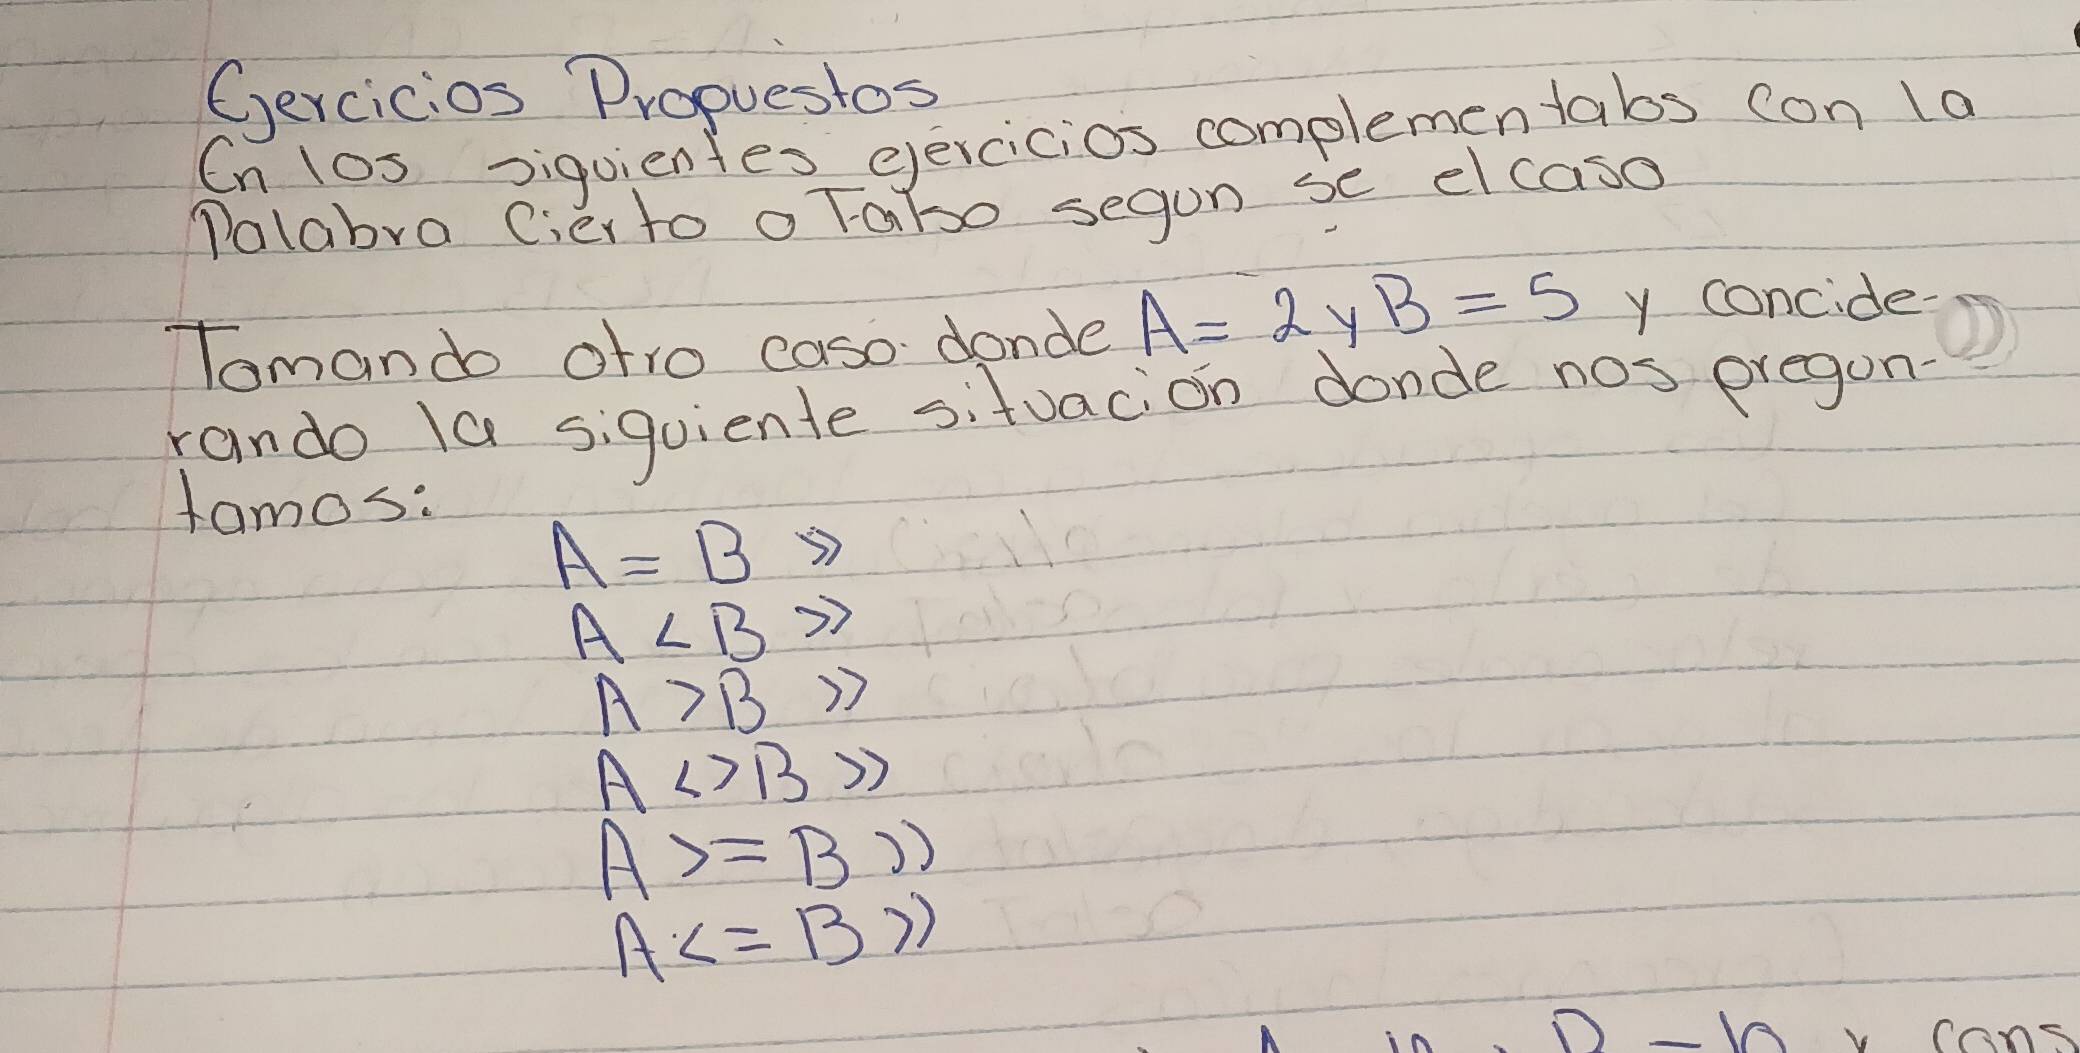 Ejercicios Propuestos
En los siguientes ejercicios complementalos con la
Palabra Cierto o Falso segun se el caso
Tomando otro caso donde A = 2 y B = 5 y concide-
rando la siguiente situación donde nos pregun-
tamos:
A = B »
A < B »
A > B »
A <> B »
A >= B »
A <= B »
B = 10 y cons